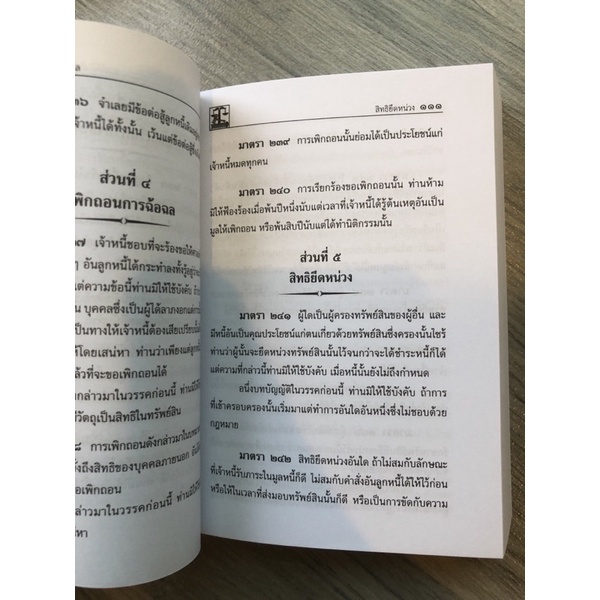 ล
๖ จำเลยมีข้อต่อสู้ลูกหนี้เดิม
จ้าหนี้ได้ทั้งนั้น เว้นแต่ข้อต่อสู้
ส่วนที่ ๔
เพิกถอนการฉ้อฉล
๗ เจ้าหนี้ชอบที่จะร้องขอให้
ๆ อันลูกหนี้ได้กระทำลงทั้งรู้อยู่
แต่ความข้อนี้ท่านมิให้ใช้บังคับ ถ้า
้น บุคคลซึ่งเป็นผู้ได้ลาภงอกแต่
เป็นทางให้เจ้าหนี้ต้องเสียเปรียบนั้น
ห้โดยเสน่หา ท่านว่าเพียงแต่ลูก
ล้วที่จะขอเพิกถอนได้
กล่าวมาในวรรคก่อนนี้ ท่านมิ
วัตถุเป็นสิทธิในทรัพย์สิน
๘ การเพิกถอนดังกล่าวมาใน
ถึงสิทธิของบุคคลภายนอก อัน
อเพิกถอน
กล่าวมาในวรรคก่อนนี้ ท่าน
หา
สิทธิยึดหน่วง ๑๑๑
มาตรา ๒๓๙ การเพิกถอนนั้นย่อมได้เป็นประโยชน์แก่
เจ้าหนี้หมดทุกคน
มาตรา ๒๔๐ การเรียกร้องขอเพิกถอนนั้น ท่านห้าม
มิให้ฟ้องร้องเมื่อพ้นปีหนึ่งนับแต่เวลาที่เจ้าหนี้ได้รู้ต้นเหตุอันเป็น
มูลให้เพิกถอน หรือพ้นสิบปีนับแต่ได้ทำนิติกรรมนั้น
ส่วนที่ ๕
สิทธิยึดหน่วง
มาตรา ๒๔๑ ผู้ใดเป็นผู้ครองทรัพย์สินของผู้อื่น และ
มีหนี้อันเป็นคุณประโยชน์แก่ตนเกี่ยวด้วยทรัพย์สินซึ่งครองนั้นไซร้
ท่านว่าผู้นั้นจะยึดหน่วงทรัพย์สินนั้นไว้จนกว่าจะได้ชำระหนี้ก็ได้
แต่ความที่กล่าวนี้ท่านมิให้ใช้บังคับ เมื่อหนี้นั้นยังไม่ถึงกำหนด
อนึ่งบทบัญญัติในวรรคก่อนนี้ ท่านมิให้ใช้บังคับ ถ้าการ
ที่เข้าครอบครองนั้นเริ่มมาแต่ทำการอันใดอันหนึ่งซึ่งไม่ชอบด้วย
กฎหมาย
มาตรา ๒๔๒ สิทธิยึดหน่วงอันใด ถ้าไม่สมกับลักษณะ
ที่เจ้าหนี้รับภาระในมูลหนี้ก็ดี ไม่สมกับคำสั่งอันลูกหนี้ได้ให้ไว้ก่อน
หรือให้ในเวลาที่ส่งมอบทรัพย์สินนั้นก็ดี หรือเป็นการขัดกับความ